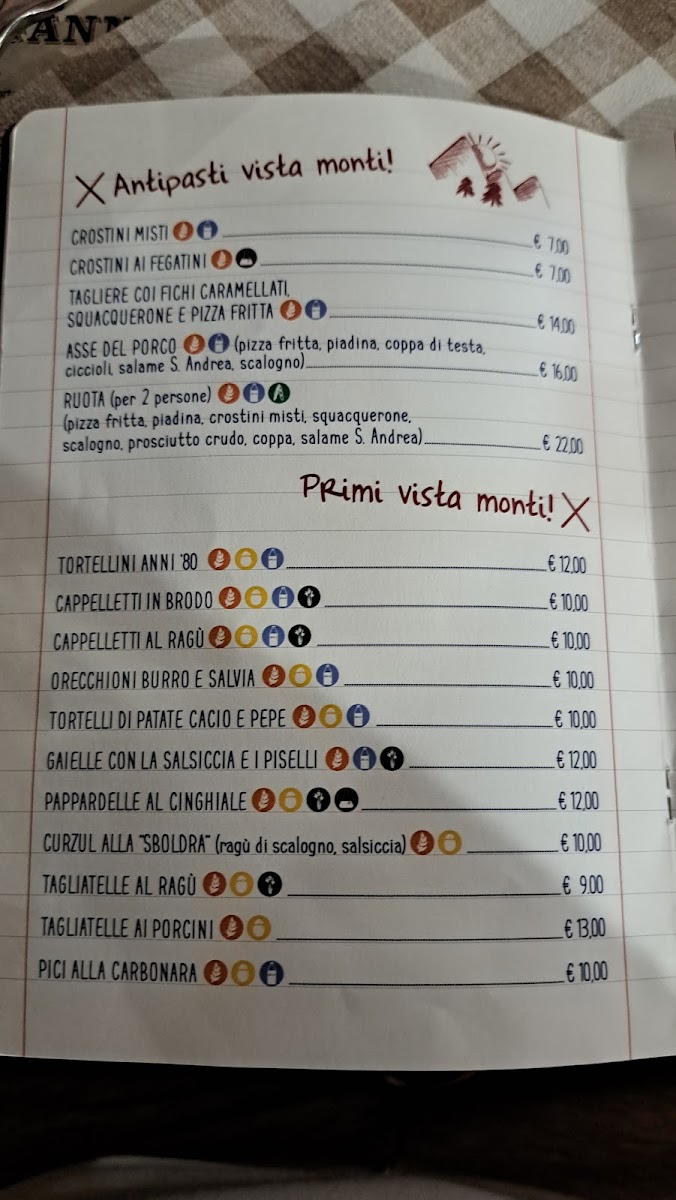 Antipasti vista monti!
CROSTINI MISTI € 7,00
CROSTINI AI FEGATINI € 7,00
TAGLIERE COI FICHI CARAMELLATI,
SQUACQUERONE E PIZZA FRITTA € 14,00
ASSE DEL PORCO (pizza fritta, piadina, coppa di testa,
ciccioli, salame S. Andrea, scalogno) € 16,00
RUOTA (per 2 persone)
(pizza fritta, piadina, crostini misti, squacquerone,
scalogno, prosciutto crudo, coppa, salame S. Andrea) € 22,00
Primi vista monti!
TORTELLINI ANNI '80 € 12,00
CAPPELLETTI IN BRODO € 10,00
CAPPELLETTI AL RAGÙ € 10,00
ORECCHIONI BURRO E SALVIA € 10,00
TORTELLI DI PATATE CACIO E PEPE € 10,00
GAIELLE CON LA SALSICCIA E I PISELLI € 12,00
PAPPARDELLE AL CINGHIALE € 12,00
CURZUL ALLA "SBOLDRA" (ragù di scalogno, salsiccia) € 10,00
TAGLIATELLE AL RAGÙ € 9,00
TAGLIATELLE AI PORCINI € 13,00
PICI ALLA CARBONARA € 10,00